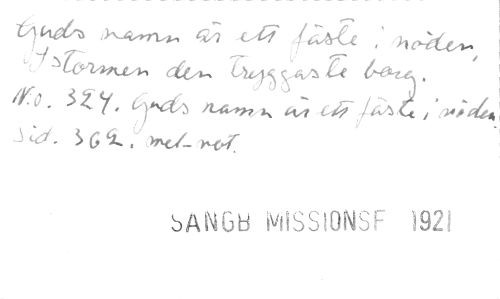 Guds namn är ett fäste i nöden,
I stormen den tryggaste borg.
N.o. 324. Guds namn är ett fäste i nöden.
Sid. 362. mel-not.
SANGB MISSIONSF 1921